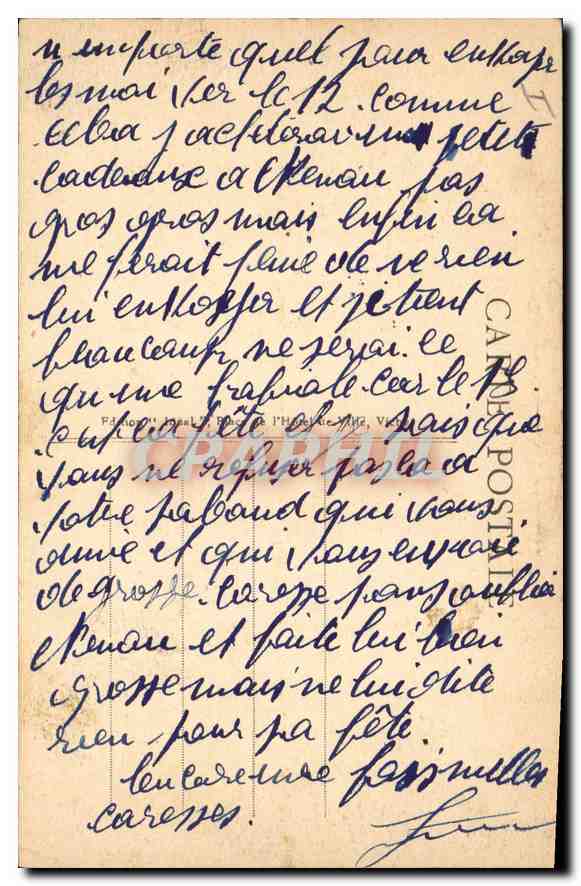 n importe quel jour envoyer
les moi ver le 12. comme
cela j acheterai un petit
cadeaux a Renau pas
gros gros mais enfin ca
me ferait peine de ne rien
lui envoyer et je tient
beaucoup ne serai ce
qu une babiole car le 14
c est ca fête et
vous ne refuser pas ca a
votre qui vous
aime et qui vous envoie
de grosse caresse sans oublier
Renau et faite lui
grosse mais ne lui dite
rien pour sa fête
encore une fois mille
caresses.
CARTE POSTALE
Edition " ", Place de l'Hôtel de Ville,
CPAPHIL